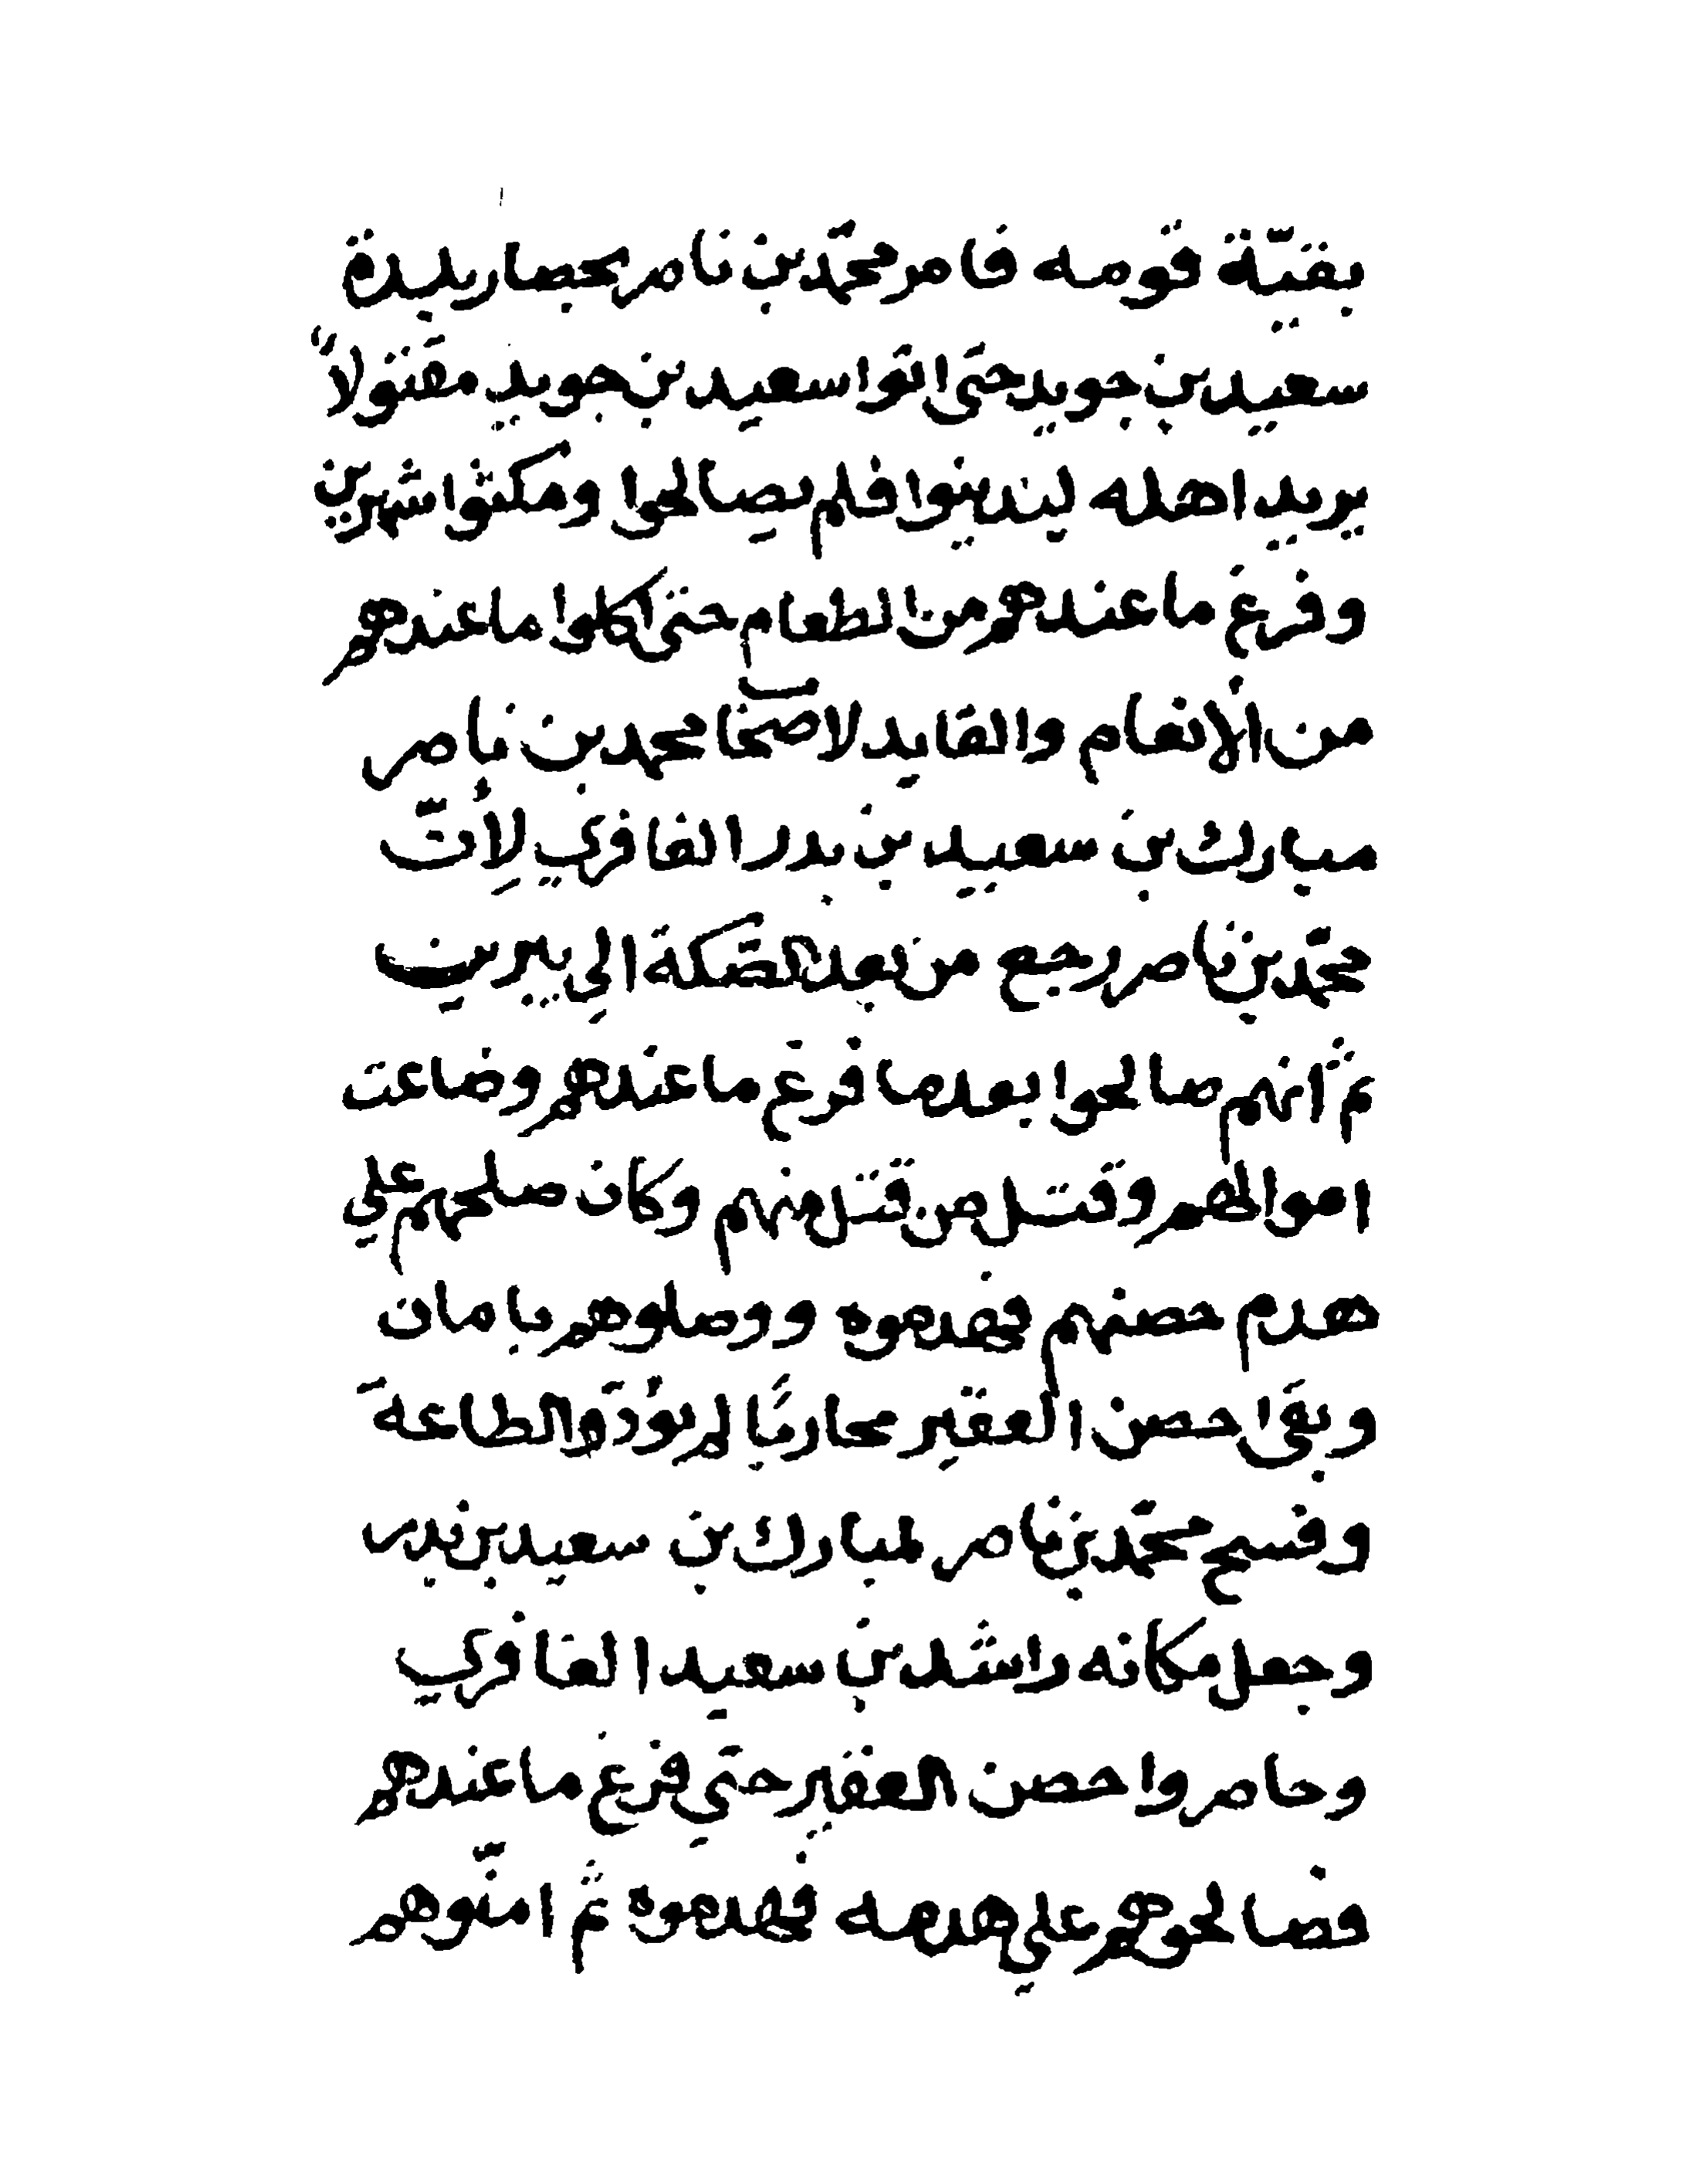 بقيّة قومه فامر محمّد بن ناصر بحصار بلدة
سعيد بن جويد حتى اتوا سعيد بن جويد مقتولاً
يريد اهله ليدينوا فلم يصالحوا ومكثوا شهرين
وفرغ ما عندهم من الطعام حتى اكلوا ما عندهم
من الأنعام والقايد لاصحاب محمد بن ناصر
مبارك بن سعيد بن بدر الغافري لأنّ
محمّد بن ناصر رجع من بعد الصّكة الي يبرين
ثم انهم صالحوا بعد ما فرغ ما عندهم وضاعت
اموالهم وقتل من قتل منهم وكان صلحهم علي
هدم حصنهم فهدموه ووصلوهم بامان
وبقى حصن العقير محاربًا لم يؤدوا الطاعة
وفسح محمّد بن ناصر لمبارك بن سعيد بن بدر
وجعل مكانه راشد بن سعيد الغافري
وحاصروا حصن العقير حتى فرغ ما عندهم
فصالحوهم علي هدمه فهدموه ثم امنّوهم